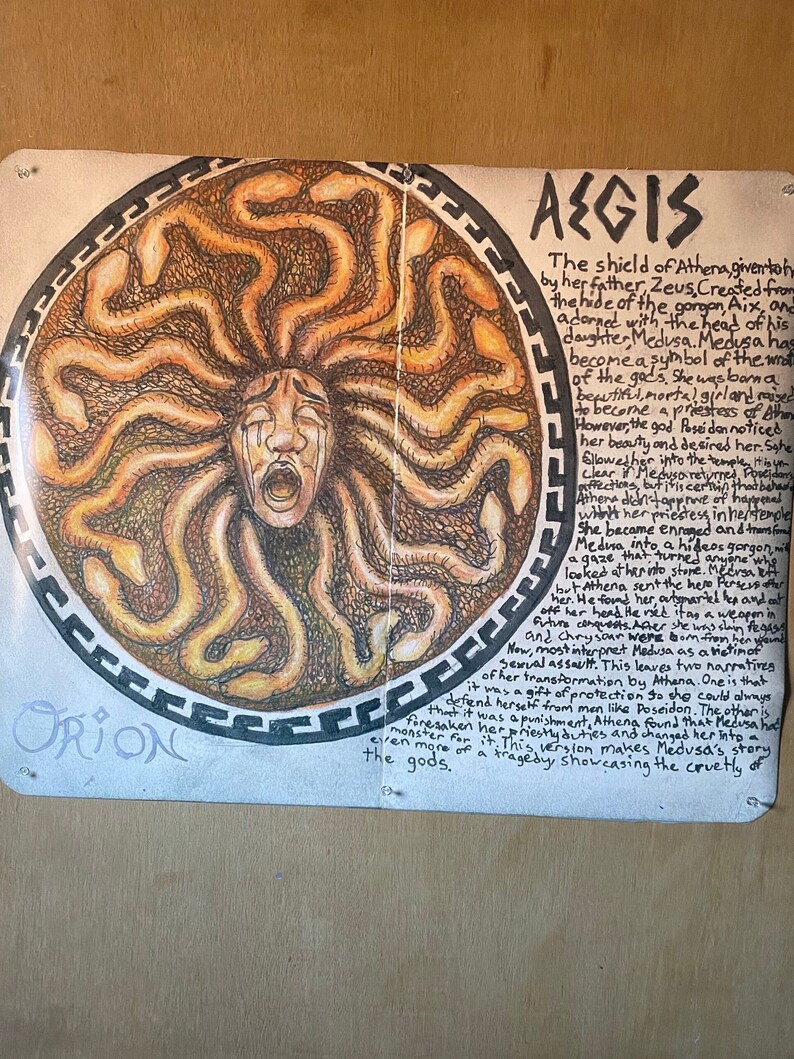 AEGIS
The shield of Athena, given to h
by her father, Zeus. Created from
the hide of the gorgon, Aix, and
adorned with the head of his
daughter, Medusa. Medusa has
become a symbol of the wrat
of the gods. She was born a
beautiful, mortal girl and raised
to become a priestess of Athen
However, the god Poseidon noticed
her beauty and desired her. So he
followed her into the temple. It is un-
clear if Medusa returned Poseidon's
affections, but it is certain that
Athena didn't approve of happened
her priestess, in her temple
She became enraged and transform
Medusa into a hideos gorgon, wit
a gaze that turned anyone who
looked at her into stone. Medusa left
but Athena sent the hero Perseus after
her. He found her, outsmarted her and cut
off her head. He used it as a weapon in
future conquests. After she was slain Pegasus
and Chrysoar were born from her wound
Now, most interpret Medusa as a victim of
sexual assault. This leaves two narratives
of her transformation by Athena. One is that
it was a gift of protection so she could always
defend herself from men like Poseidon. The other is
that it was a punishment, Athena found that Medusa had
foresaken her priestly duties and changed her into a
monster for it. This version makes Medusa's story
even more of a tragedy, showcasing the cruelty of
the gods.
ORiON